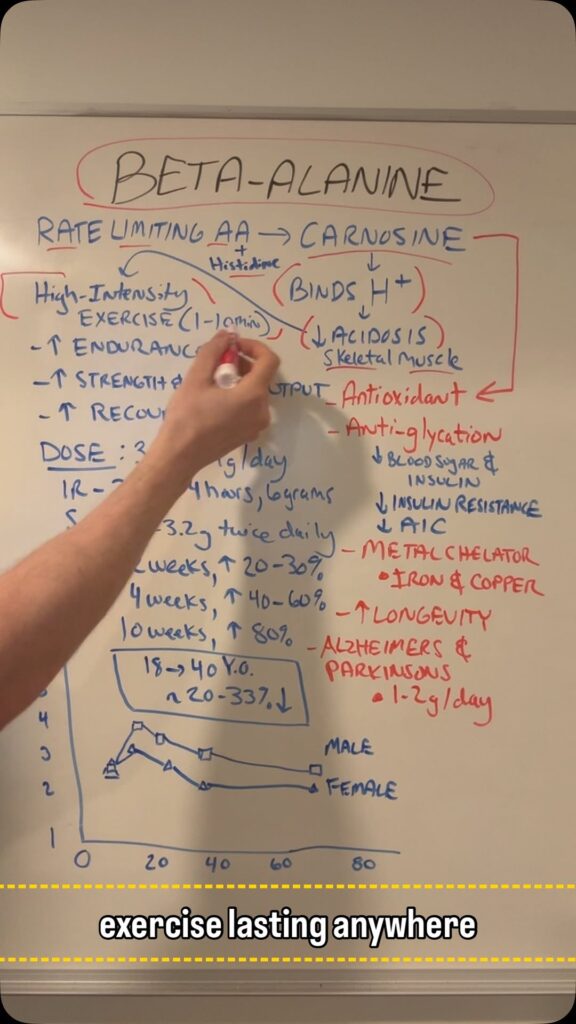 BETA-ALANINE
RATE LIMITING AA → CARNOSINE
+
Histidine
High-Intensity
EXERCISE (1-10min)
- ↑
- ↑ STRENGTH &
- ↑
BINDS H+
↓ ACIDOSIS
Skeletal Muscle
DOSE : g/day
IR - 4 hours, 6grams
3.2g twice daily
weeks, ↑ 20-30%
4 weeks, ↑ 40-60%
10 weeks, ↑ 80%
18 → 40 Y.O.
~ 20-33% ↓
- Antioxidant
- Anti-glycation
↓ BLOOD SUGAR &
INSULIN
↓ INSULIN RESISTANCE
↓ A1C
- METAL CHELATOR
• IRON & COPPER
- ↑ LONGEVITY
- ALZHEIMERS &
PARKINSONS
• 1-2g/day
4
3
2
1
MALE
FEMALE
0 20 40 60 80
exercise lasting anywhere